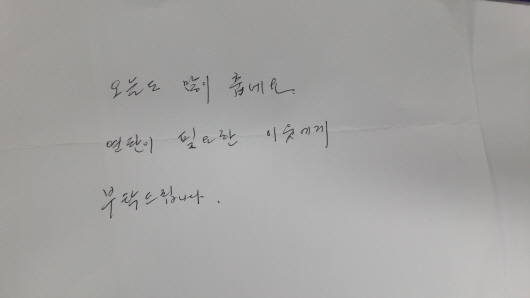 오늘도 많이 춥네요.
연탄이 필요한 이웃에게
부탁드립니다.